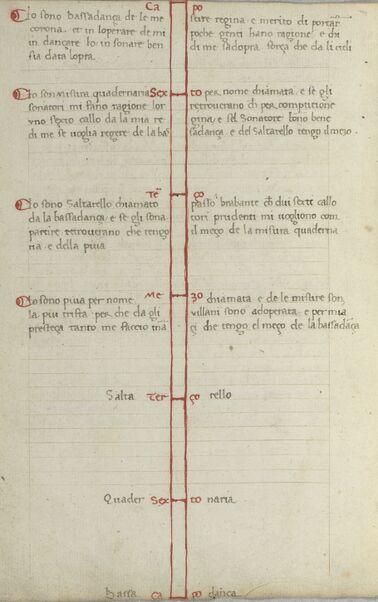 Ca po
Io sono bassadança de le me sure regina e merito di portar
corona et in loperare de mi poche genti hano ragione e chi
in dançare lo in sonare ben di me sadopra força che da li cieli
sia data lopra.
Io son misura quadernaria Sex to per nome chiamata e se gli
sonatori mi fano ragione lor retroverano ch per
uno sexto callo da la mia re gina e sel Sonatore bono bene
di me se voglia regere de la bas sadança e del Saltarello tengo il meço.
Te ço
Io sono Saltarello chiamato passo brabante ch dui sexti callo
da la bassadança e se gli sona tori prudenti mi vogliono com
partire retroverano che tengo il meço de la misura quaderna
ria e della piva
Me ço
Io sono piva per nome chiamata e de le misure son
la piu trista per che da gli villani sono adoperata e per mia
presteça tanto me faccio inã çi che tengo el meço de la bassadãça
Salta Ter ço rello
Quader Sex to naria
Bassa ca po dança